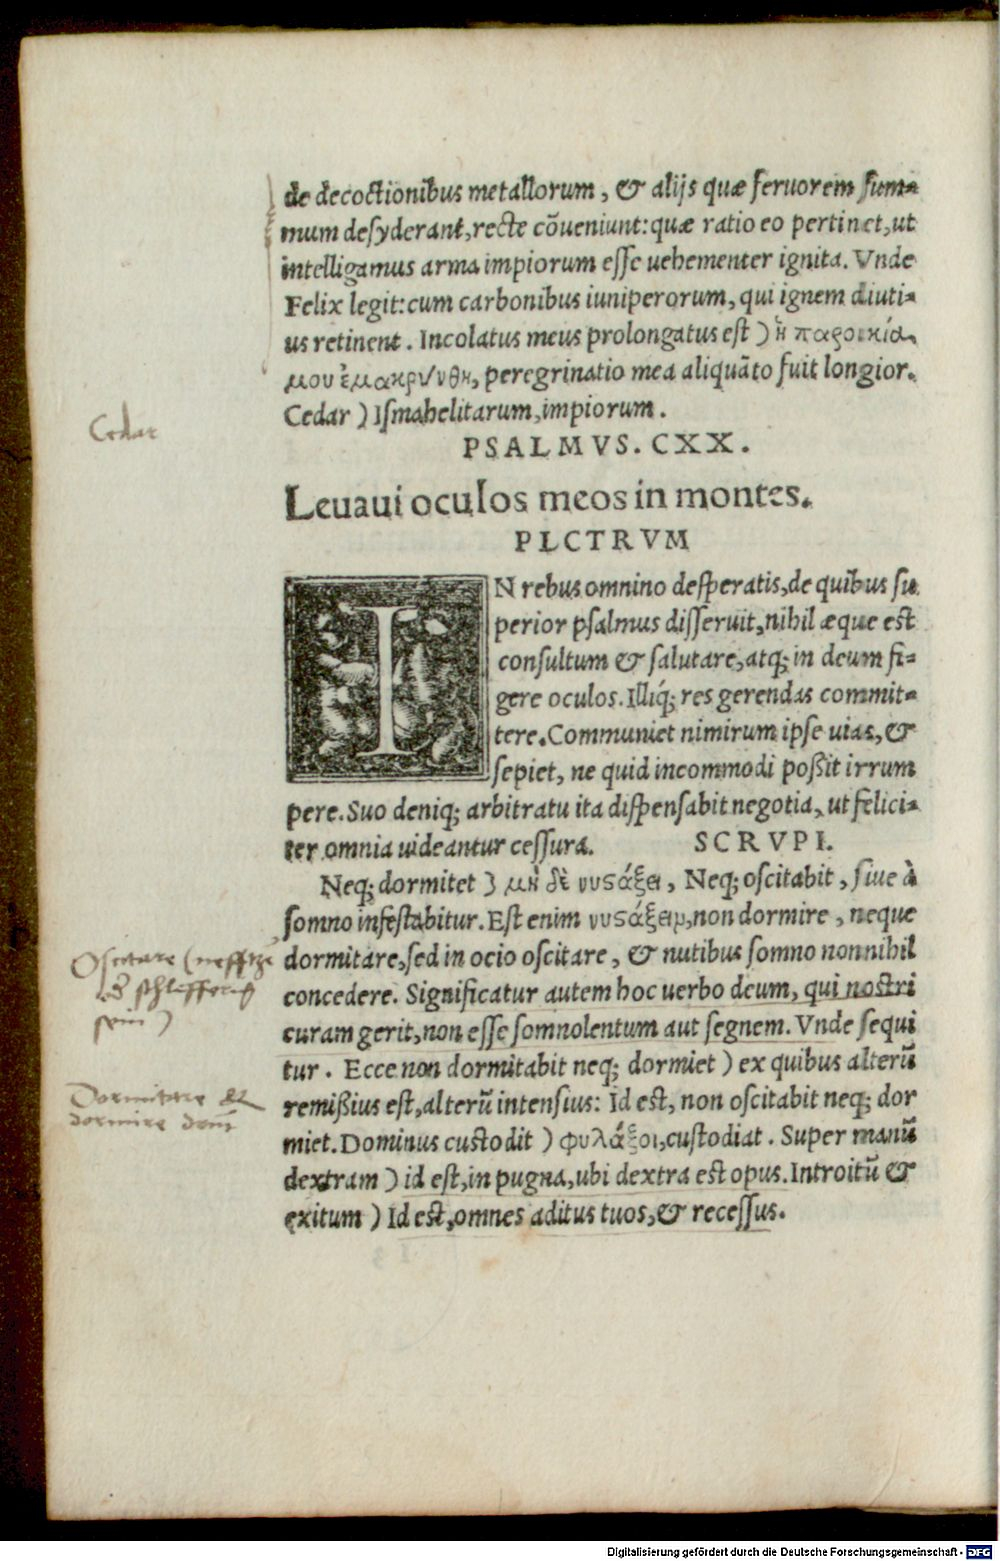 de decoctionibus metallorum, & alijs quæ feruorem sum-
mum desyderant, recte cõueniunt: quæ ratio eo pertinet, ut
intelligamus arma impiorum esse uehementer ignita. Vnde
Felix legit: cum carbonibus iuniperorum, qui ignem diuti-
us retinent. Incolatus meus prolongatus est ) ἡ παροικία
μου ἐμακρύνθη, peregrinatio mea aliquãto fuit longior.
Cedar ) Ismahelitarum, impiorum.
Cedar
PSALMVS. CXX.
Leuaui oculos meos in montes.
PLCTRVM
IN rebus omnino desperatis, de quibus su
perior psalmus disseruit, nihil æque est
consultum & salutare, atq; in deum fi-
gere oculos. Illiq́; res gerendas commit-
tere. Communiet nimirum ipse uias, &
sepiet, ne quid incommodi poßit irrum
pere. Suo deniq; arbitratu ita dispensabit negotia, ut felici-
ter omnia uideantur cessura. SCRVPI.
Neq; dormitet ) μὴ δὲ νυϛάξει, Neq; oscitabit, siue à
somno infestabitur. Est enim νυϛάξειν, non dormire, neque
dormitare, sed in ocio oscitare, & nutibus somno nonnihil
concedere. Significatur autem hoc uerbo deum, qui nostri
curam gerit, non esse somnolentum aut segnem. Vnde sequi
tur. Ecce non dormitabit neq; dormiet ) ex quibus alterũ
remißius est, alterũ intensius: Id est, non oscitabit neq; dor
miet. Dominus custodit ) φυλάξοι, custodiat. Super manũ
dextram ) id est, in pugna, ubi dextra est opus. Introitũ &
exitum ) Id est, omnes aditus tuos, & recessus.
Oscitare
sein )
Dormitare &
dormire
Digitalisierung gefördert durch die Deutsche Forschungsgemeinschaft - DFG